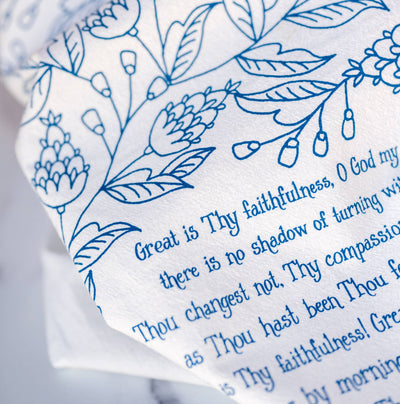 Great is Thy faithfulness, O God my
there is no shadow of turning wi
Thou changest not, Thy compassion
as Thou hast been Thou fo
is Thy faithfulness! Grea
by morning
Th